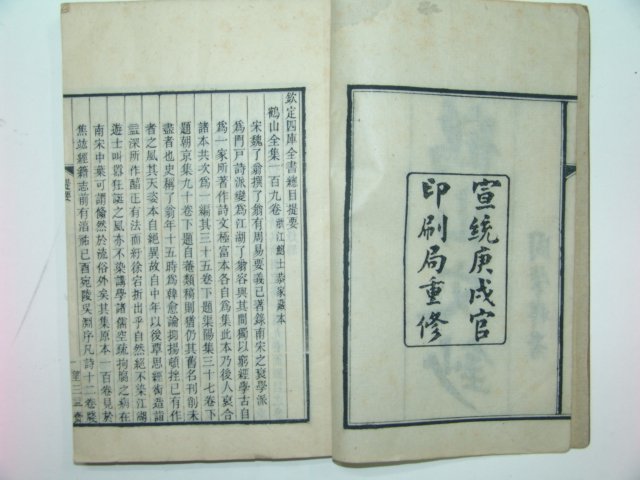 宣統庚戌官
印刷局重修
欽定四庫全書總目提要
鶴山全集一百九卷 浙江鮑士恭家藏本
宋魏了翁撰了翁有周易要義已著錄南宋之衰學派
變為門戶詩派變為江湖了翁容與其間獨以窮經學古自
為一家所著作詩文極富本各自為集此本乃後人裒合
諸本共次為一編其三十五卷下題渠陽集三十七卷下
題朝京集九十卷下題自菴類稿則猶仍其舊名刊削未
盡者也史稱了翁年十五時為韓愈論抑揚頓挫已有作
者之風其天姿本自絕異故自中年以後覃思經術造詣
益深所作醇正有法而紆徐宕折出乎自然絕不染江湖
遊士叫囂狂誕之風亦不染講學諸儒空疏拘腐之病在
南宋中葉可謂翛然於流俗外矣其集原本一百卷見於
焦竑經籍志前有淳祐己酉宛陵吳淵序凡詩十二卷牋
提要